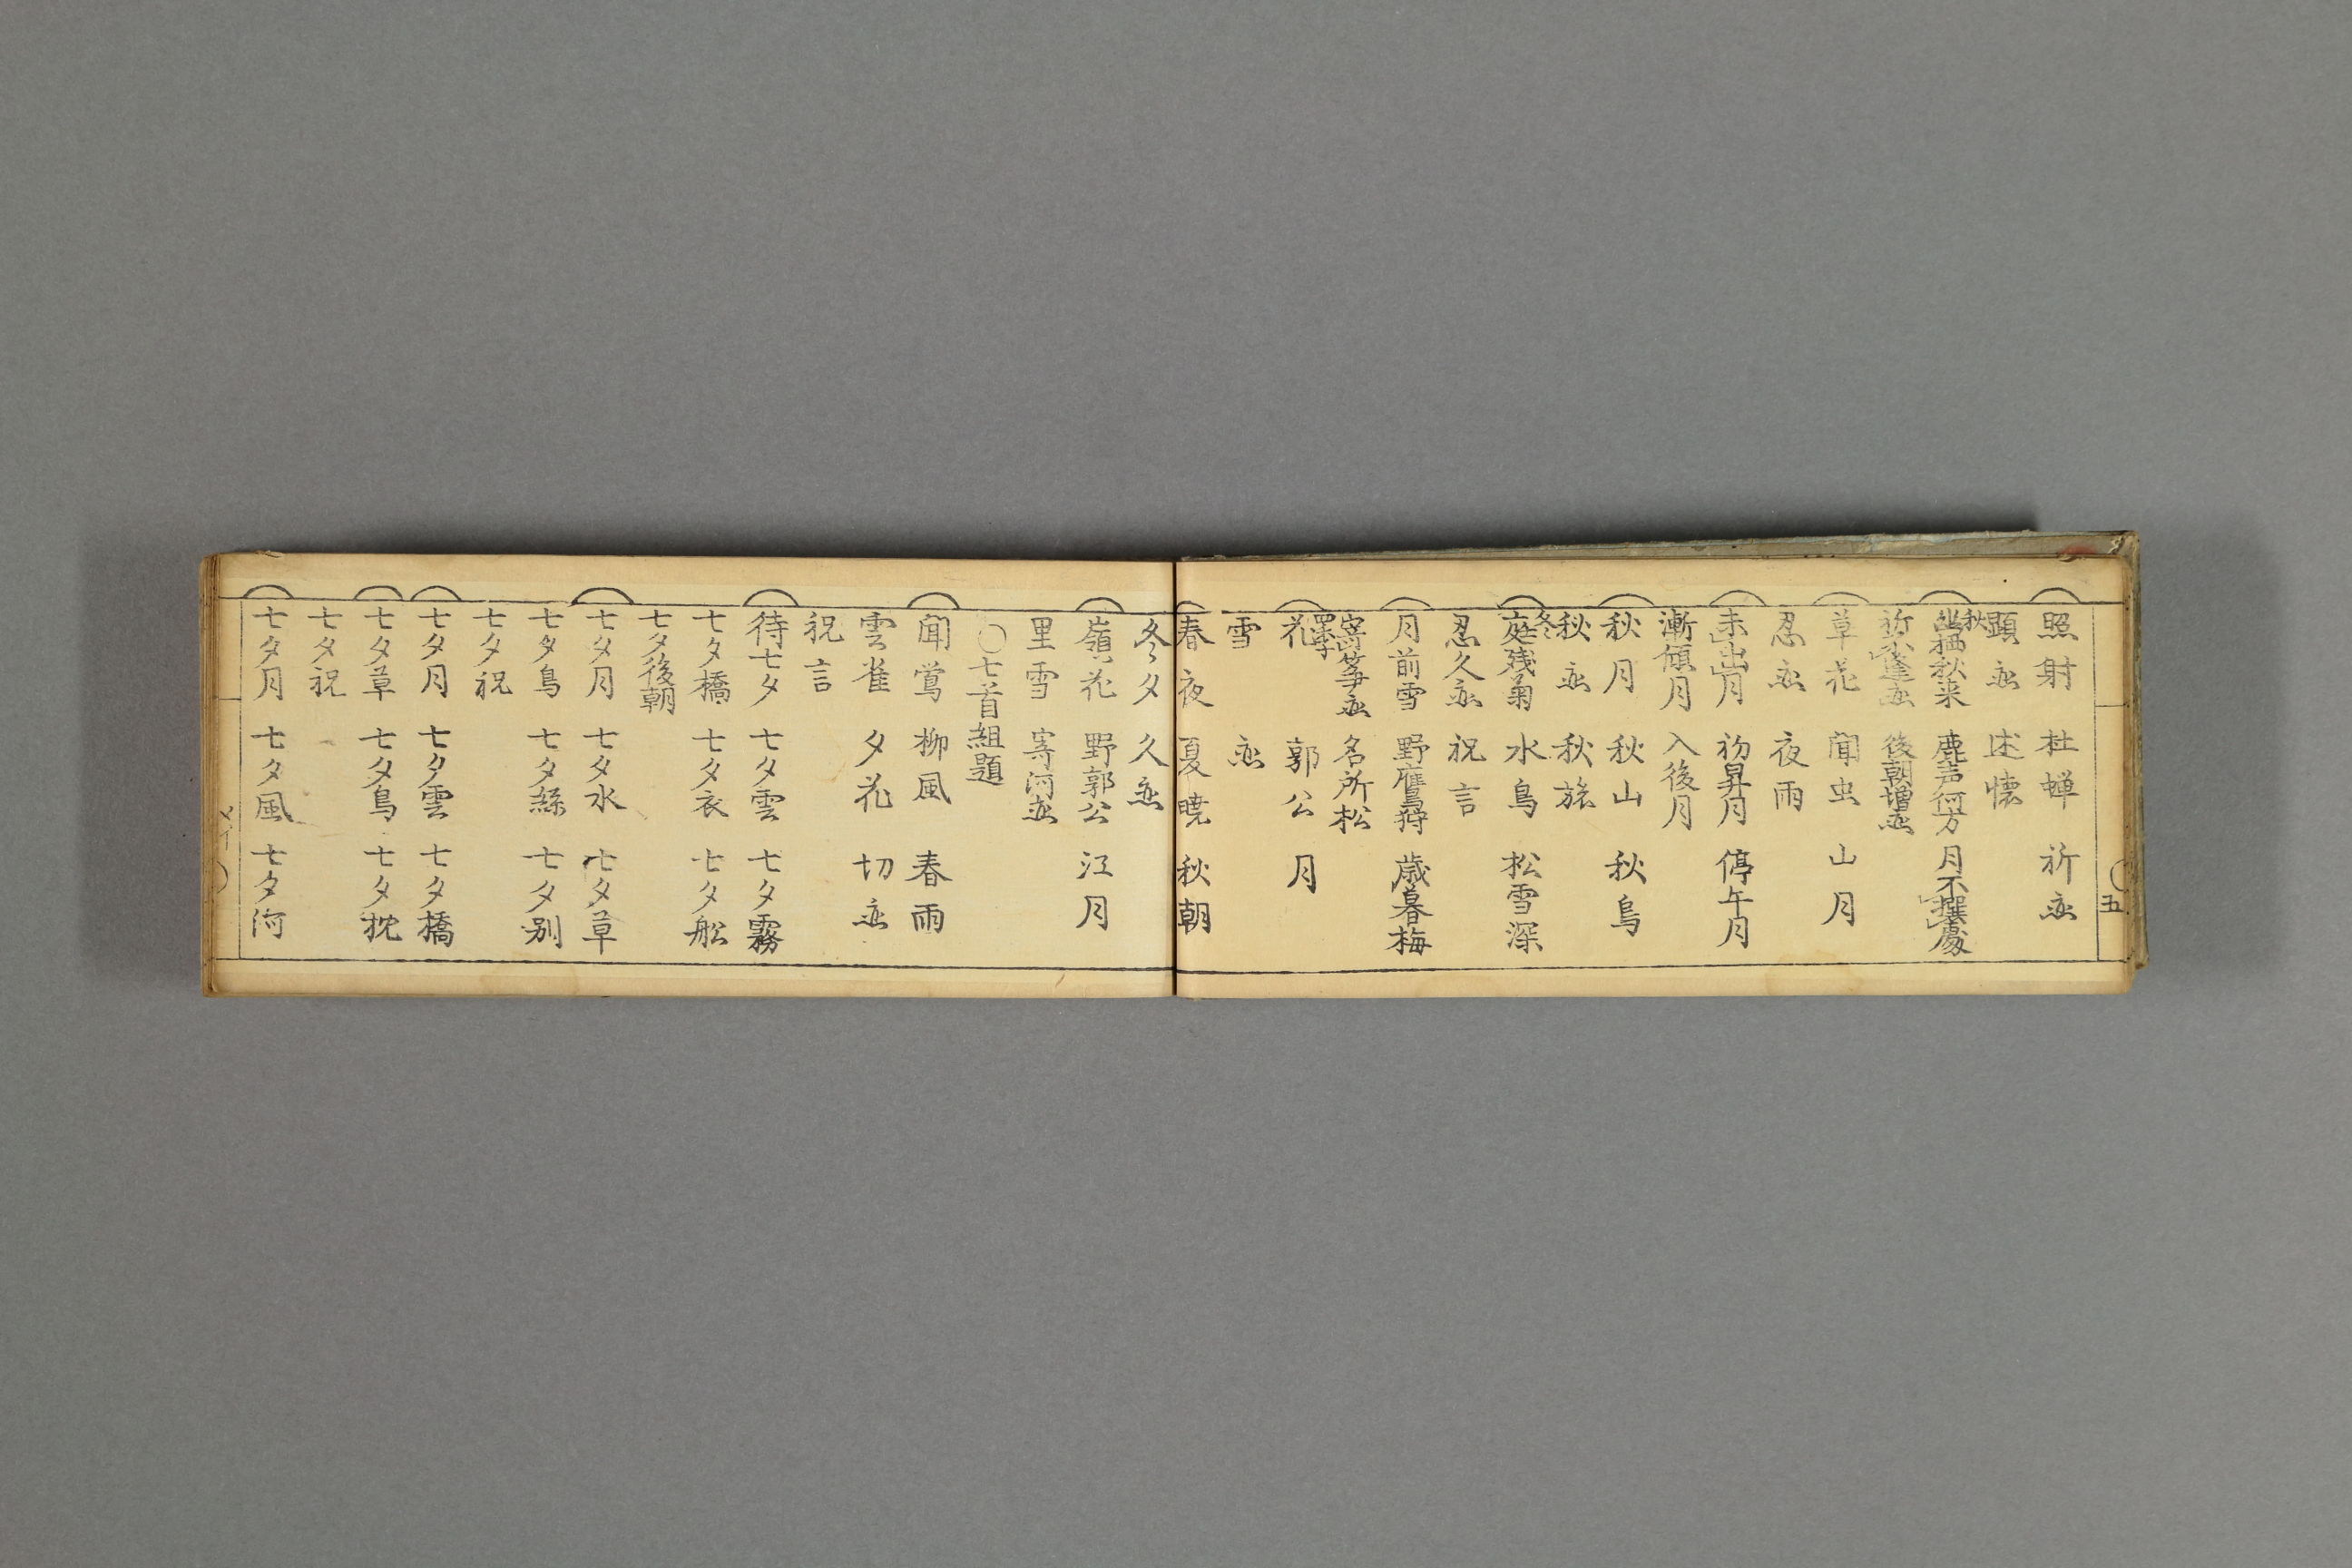 五
照射 杜蝉 祈恋
顕恋 述懐
秋
幽栖秋来 鹿声何方 月不撰處
祈不逢恋 後朝増恋
草花 聞虫 山月
忍恋 夜雨
未出月 初昇月 停午月
漸傾月 入後月
秋月 秋山 秋鳥
秋恋 秋旅
冬
庭残菊 水鳥 松雪深
忍久恋 祝言
月前雪 野鷹狩 歳暮梅
寄筝恋 名所松
四季
花 郭公 月
雪 恋
春夜 夏暁 秋朝
冬夕 久恋
嶺花 野郭公 江月
里雪 寄河恋
〇七首組題
聞鴬 柳風 春雨
雲雀 夕花 切恋
祝言
待七夕 七夕雲 七夕霧
七夕橋 七夕衣 七夕舩
七夕後朝
七夕月 七夕水 七夕草
七夕鳥 七夕絲 七夕別
七夕祝
七夕月 七夕雲 七夕橋
七夕草 七夕鳥 七夕枕
七夕祝
七夕月 七夕風 七夕河